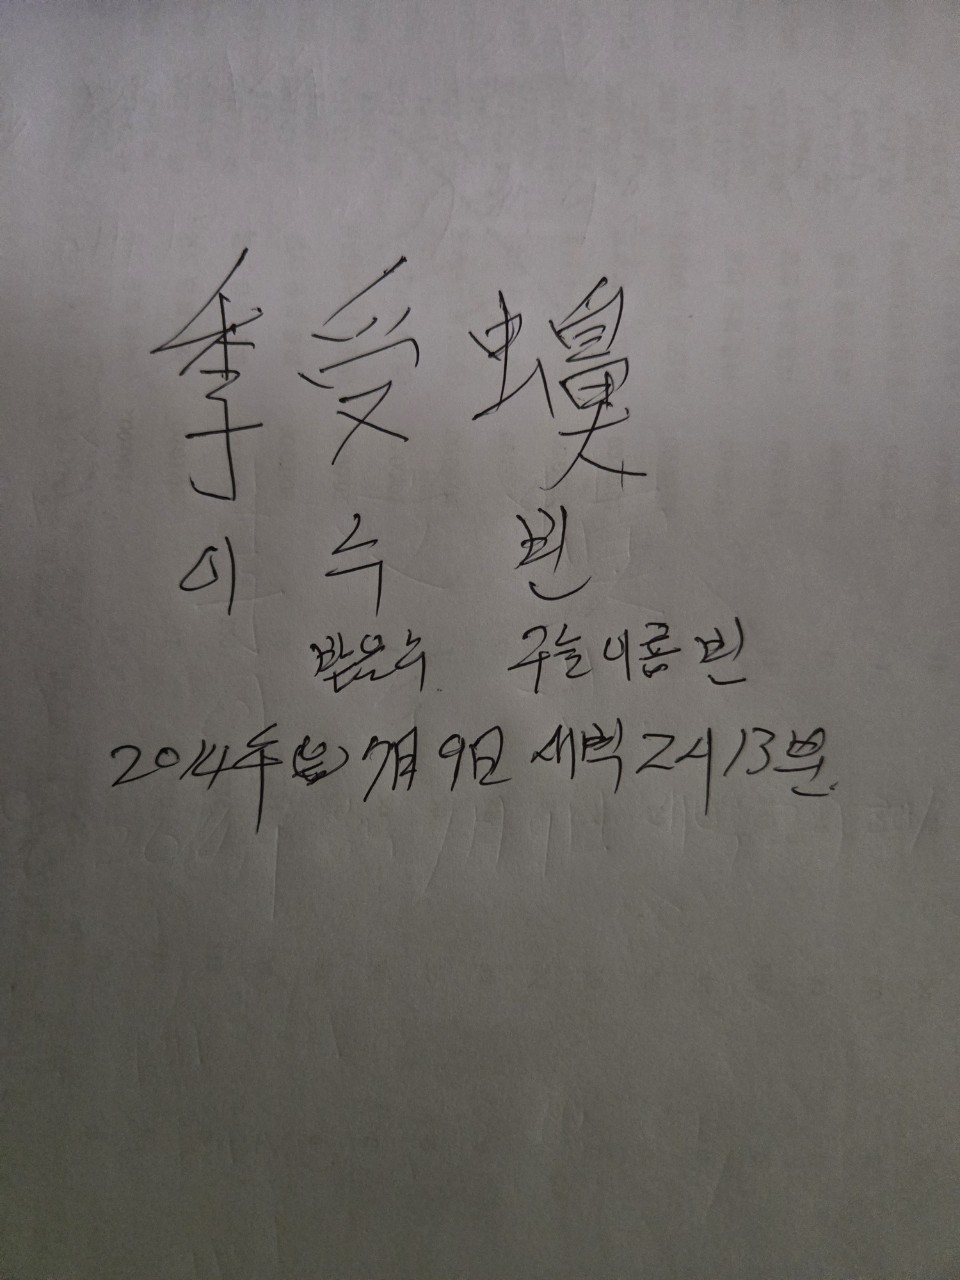 季受蠙
이 수 빈
받을수 구슬이름 빈
2014年(음) 7月 9日 새벽 2시 13분.